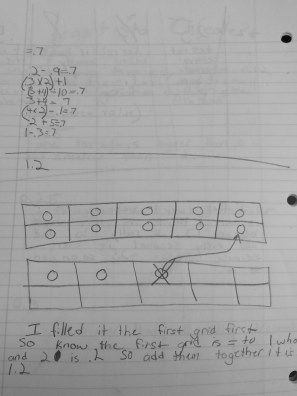 = 7
2 - 9=7
(3x2)+1
(8+9)-10=7
3+4= 7
(4x2)-1=7
2+5=7
1-3=7
1.2
I filled it the first grid first
So know the first grid is = to 1 who
and 2 is .2 So add them together it is
1.2